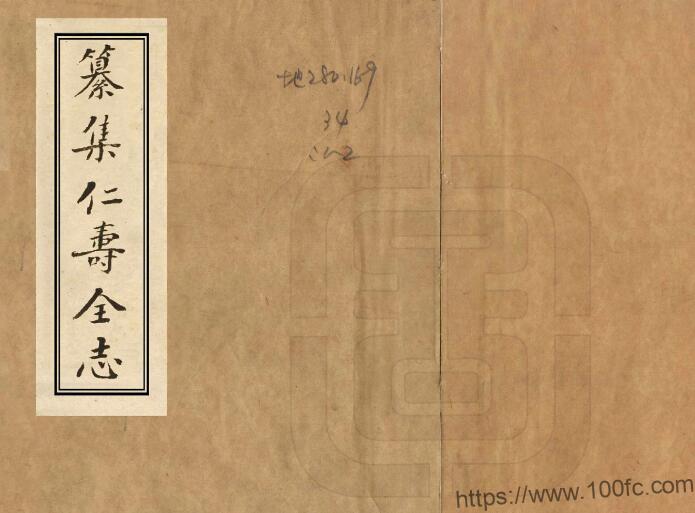 纂集仁壽全志
地280.169
34
https://www.100fc.com